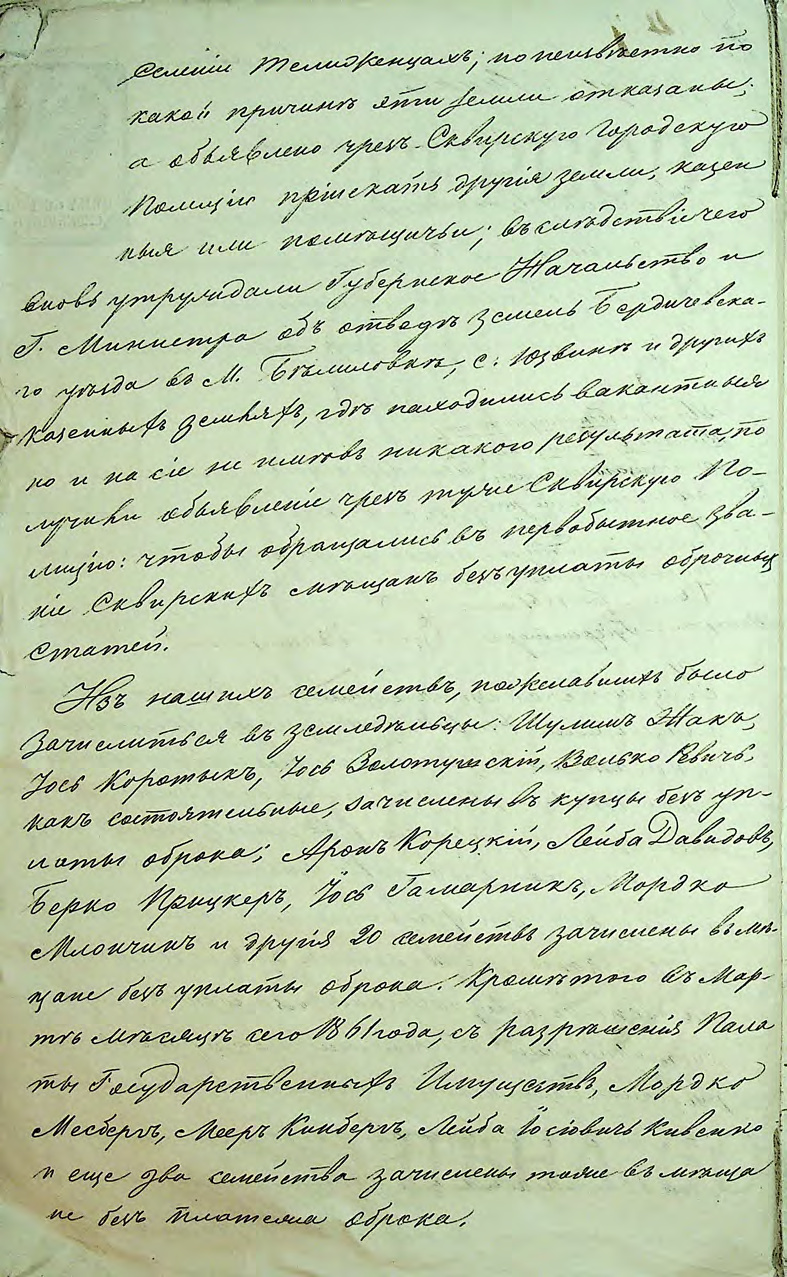 селеніи Телидженцахъ; но неизвѣстно по
какой причинѣ эти земли отказаны;
а объявлено чрезъ Сквирскую Городскую
Полицію пріискать другія земли, казен
ныя или помѣщичьи; въ слѣдствіе чего
вновь утруждали Губернское Начальство и
Г. Министра объ отводѣ земель Бердичевска-
го уѣзда въ М. Бѣлиловкѣ, с: Юзвинѣ и другихъ
казенныхъ земляхъ, гдѣ находились вакантныя
но и на сіе не имѣвъ никакого результата, по
лучивъ объявленіе чрезъ туже Сквирскую По-
лицію: чтобы обращались въ первобытное зва-
ніе Сквирскихъ мѣщанъ безъ уплаты оброчных
статей.
Изъ нашихъ семействъ, пожелавшихъ было
зачислиться въ земледѣльцы: Шулимъ Жакъ,
Іось Коротыкъ, Іось Золотушскій, Волько Ревичъ,
какъ состоятельные, зачислены въ купцы безъ уп-
латы оброка; Аронъ Корецкій, Лейба Давидовъ,
Берко Прицкеръ, Іось Гамарникъ, Мордко
Млончикъ и другія 20 семействъ зачислены въ мѣ-
щане безъ уплаты оброка. Кромѣ того въ Мар-
тѣ мѣсяцѣ сего 1861 года, съ разрѣшенія Пала
ты Государственныхъ Имуществъ, Мордко
Месбергъ, Мееръ Кинбергъ, Лейба Іосіовичъ Кивенко
и еще два семейства зачислены тоже въ мѣща
не безъ платежа оброка.